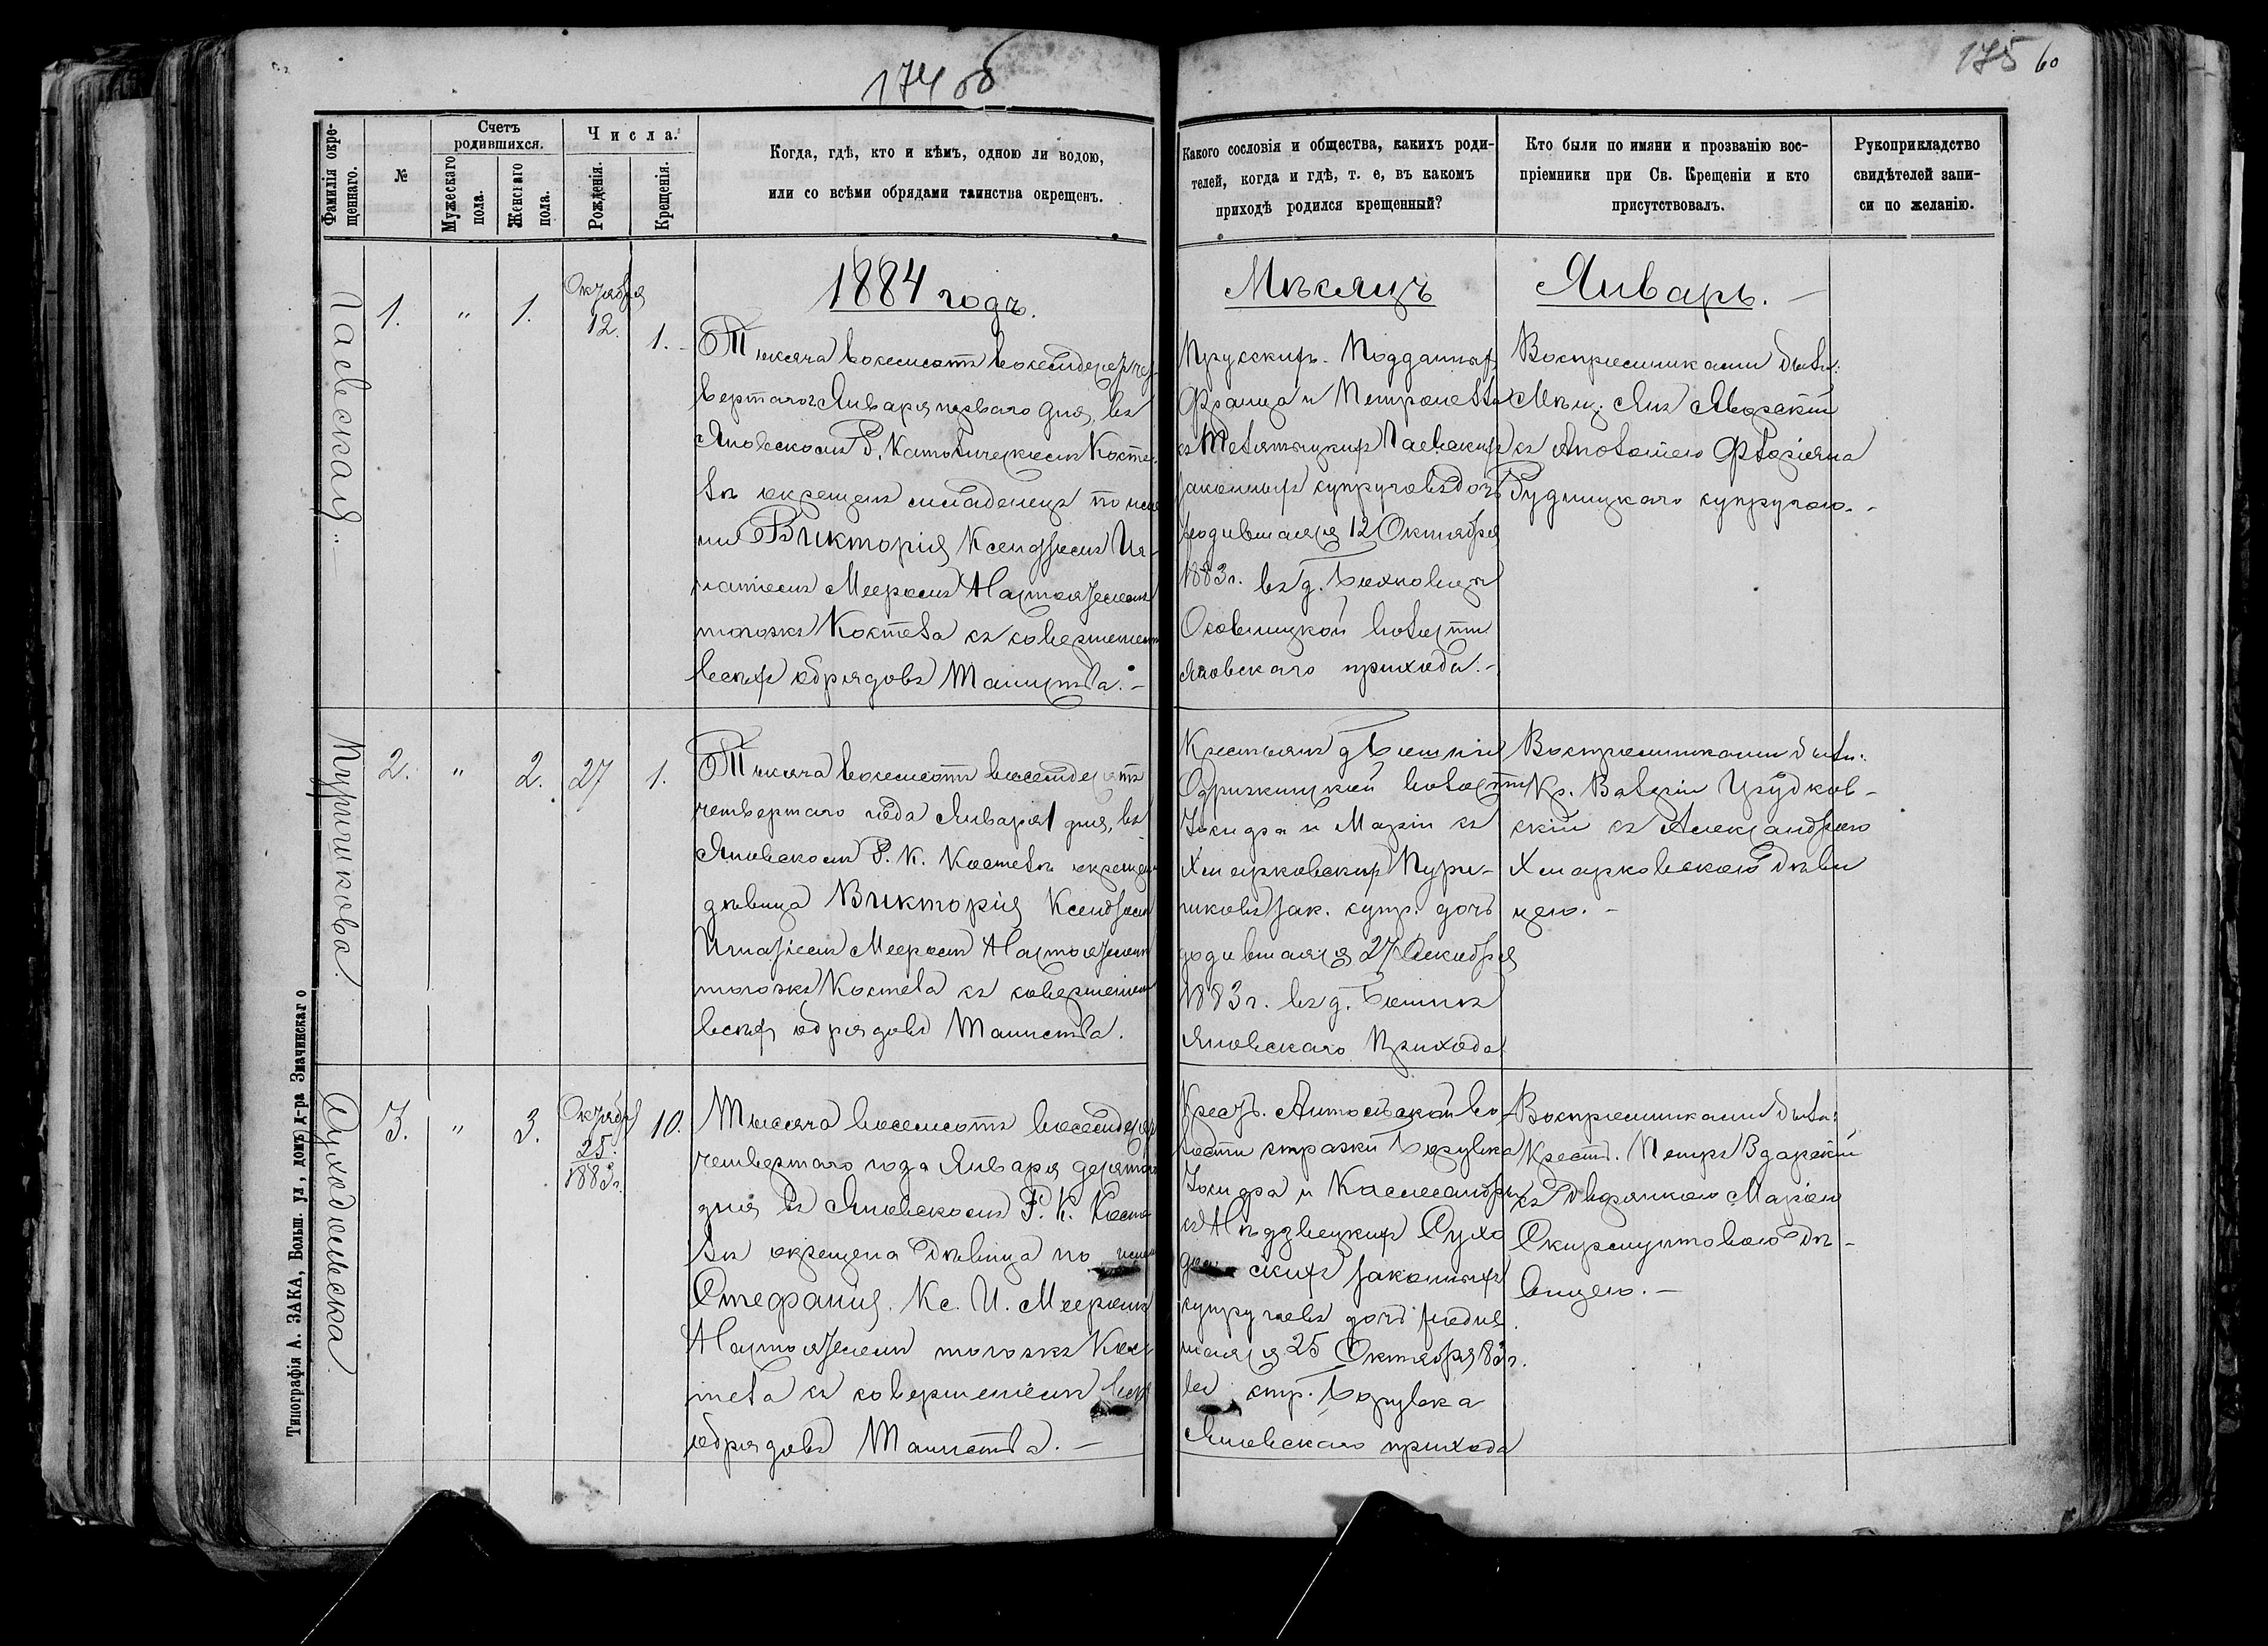 174 об
175 60
Фамилія окре-
щеннаго.
№
Счетъ
родившихся.
Мужескаго
пола.
Женскаго
пола.
Числа.
Рожденія.
Крещенія.
Когда, гдѣ, кто и кѣмъ, одною ли водою,
или со всѣми обрядами таинства окрещенъ.
Какого сословія и общества, какихъ роди-
телей, когда и гдѣ, т. е, въ какомъ
приходѣ родился крещенный?
Кто были по имяни и прозванію вос-
пріемники при Св. Крещеніи и кто
присутствовалъ.
Рукоприкладство
свидѣтелей запи-
си по желанію.
1884 годъ.
Мѣсяцъ
Январь.
1.
"
1.
Октября
12.
1.
Тысяча восемьсотъ восемдесятъ чет-
вертаго Января перваго дня, въ
Яновскомъ Р. Католическомъ Косте-
лѣ окрещенъ младенецъ по име-
ни Викторія Ксендземъ Иг-
натіемъ Мееромъ Настоятелемъ
тогожъ Костела съ совершеніемъ
всѣхъ обрядовъ Таинства.
Прусскихъ Подданныхъ
Франца и Петронеллы
законныхъ супруговъ дочь
родившаяся 12 Октября
1883 г. въ д.
волости
Яновскаго прихода.
Воспріемниками были:
Мѣщ. Янъ Яворскій
съ Аполоніею Флоріяна
Рудницкаго супругою.
2.
"
2.
27
1.
Тысяча восемьсотъ восемдесятъ
четвертаго года Января 1 дня, въ
Яновскомъ Р. К. Костелѣ окрещена
дѣвица Викторія Ксендземъ
Игнатіемъ Мееромъ Настоятелемъ
тогожъ Костела съ совершеніемъ
всѣхъ обрядовъ Таинства.
Крестьянъ д.
Одрижинской волости
Изидра и Маріи съ
Хмарковскихъ Пури-
зак. супр. дочь
родившаяся 27 Декабря
1883 г. въ д.
Яновскаго Прихода
Воспріемниками были:
Кр. Валерій
скій съ Александрою
Хмарковскою дѣви
цею.
Суходольска
3.
"
3.
Октября
25.
1883 г.
10.
Тысяча восемьсотъ восемдесятъ
четвертаго года Января десятаго
дня въ Яновскомъ Р. К. Косте
лѣ окрещена Дѣвица по имени
Стефанія. Кс. И. Мееромъ
Настоятелемъ тогожъ Кос
тела съ совершеніемъ всѣхъ
обрядовъ Таинства.
Крест. во-
лости стражи
Изидра и
съ Нѣдзвецкихъ Сухо
скихъ законныхъ
супруговъ дочь родив
шаяся 25 Октября 83 г.
въ стр.
Яновскаго прихода
Воспріемниками были:
Крест. Петръ
съ Дворянкою Маріею
Скирмунтовою дѣ-
вицею.
Типографія А. ЗАКА, Больш. ул, домъ д-ра Значинскаго